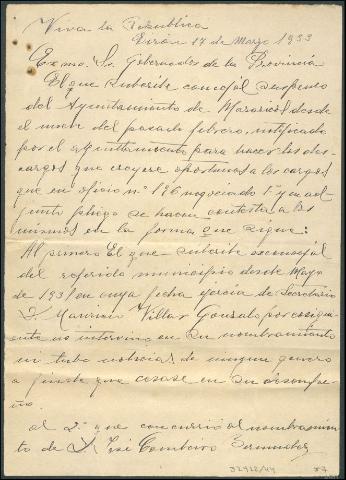 Viva la Republica
Lirón 17 de Marzo 1933
Exmo. Sr. Gobernador de la Provincia
El que subscribe concejál suspenso
del Ayuntamiento de Mazaricos desde
el nueve del pasado febrero, notificado
por el ayuntamiento para hacer los des
cargos que creyere oportunos a los cargos
que en oficio nº 196 negociado 1º y en ad
junto pliego se hacen contesta a los
mismos en la forma que sigue:
Al primero El que subscribe exconcejál
del referido municipio desde Mayo
de 1931 en cuya fecha ejercía de Secretario
D. Maximino Villar Gonzalo por consiguí
ente no intervino en su nombramiento
ni tubo noticias de ningun genero
a finde que cesase en su desempe
ño.
al 2º que concurrió al nombramien
to de D. José Tembeiro Bermudez
32928/44